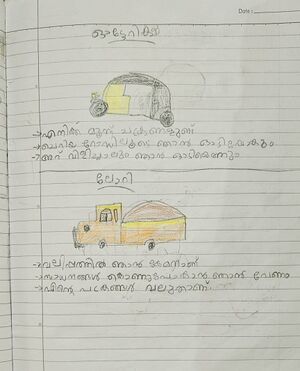 Date :
ഓട്ടോറിക്ഷ
→എനിക്ക് മൂന്ന് ചക്രങ്ങളുണ്ട്
→ചെറിയ റോഡിലൂടെ ഞാൻ ഓടിപ്പോകും
→ആര് വിളിച്ചാലും ഞാൻ ഓടിയെത്തും
ലോറി
→വലിപ്പത്തിൽ ഞാൻ കേമനാണ്
→സാധനങ്ങൾ കൊണ്ടുപോകാൻ ഞാൻ വേണം
→എന്റെ ചക്രങ്ങൾ വലുതാണ്